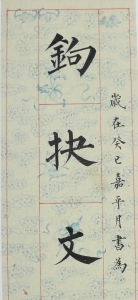 鉤抉文
歲在癸巳嘉平月書為